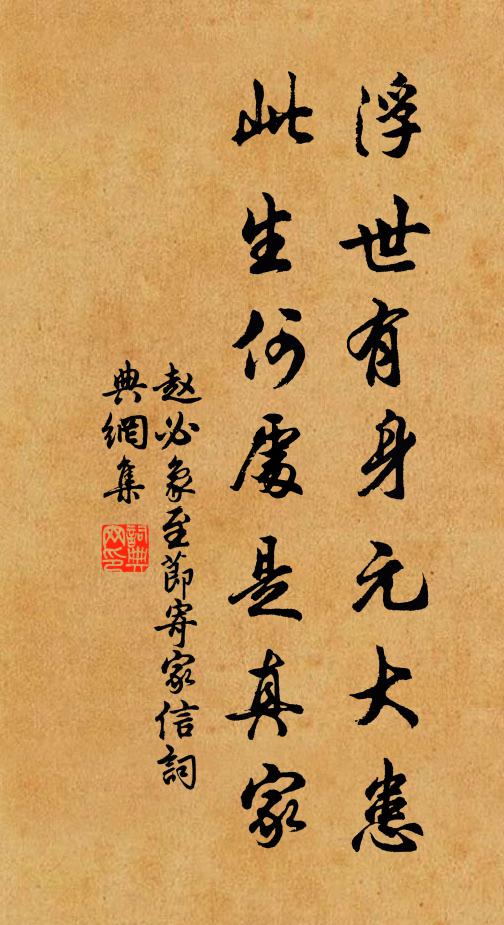 浮世有身元大患
此生何處是真家
赵必象至節寄家信詞
典網集
詞典網印